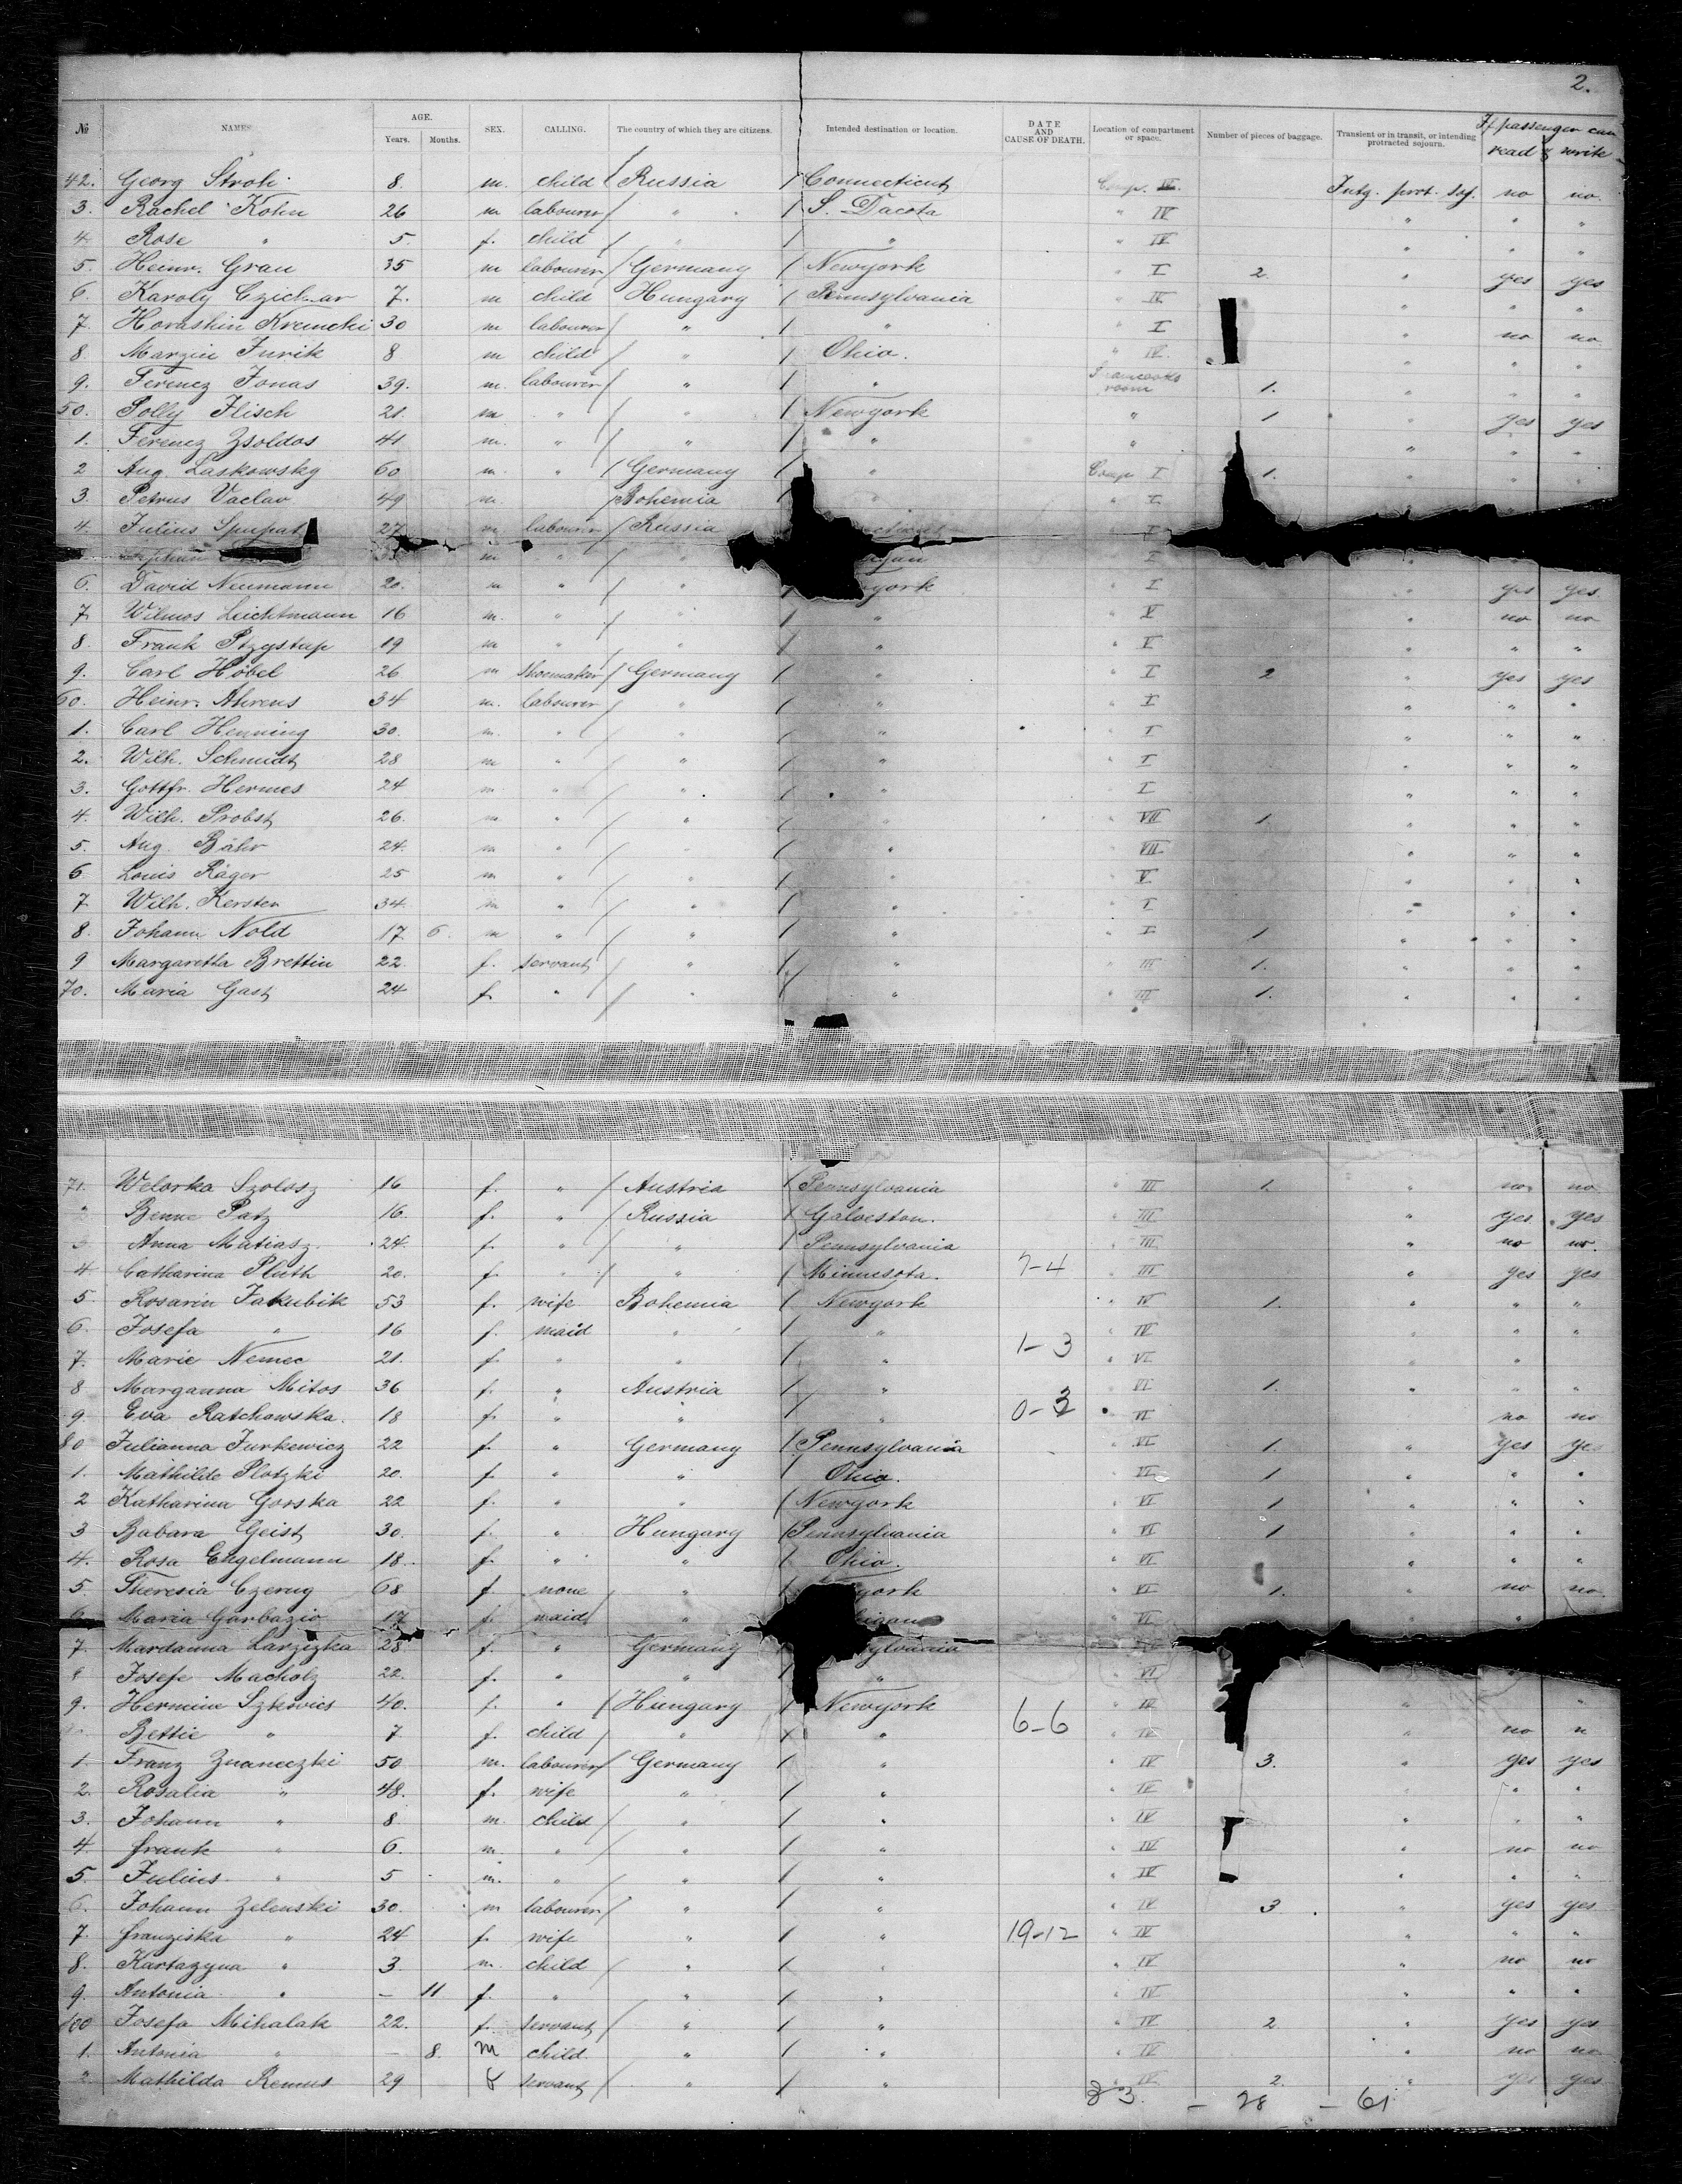 2.
№ NAMES. AGE. Years. Months. SEX. CALLING. The country of which they are citizens. Intended destination or location. DATE AND CAUSE OF DEATH. Location of compartment or space. Number of pieces of baggage. Transient or in transit, or intending protracted sojourn. If passenger can read & write
42. Georg Stroh 8. m. child Russia Connecticut Comp. IV. Intg. prot. soj. no no.
3. Rachel Kohn 26 m labourer " S. Dacota " IV " " "
4. Rose " 5. f. child " " " IV " " "
5. Heinr. Grau 35 m labourer Germany Newyork " I 2. " yes yes
6. Karoly 7. m child Hungary Pennsylvania " IV " " "
7. Horashin Kremcki 30 m labourer " " " I " no no
8. Jurik 8 m child " Ohio. " IV. " " "
9. Ferencz Jonas 39. m. labourer " " room 1. " " "
50. Polly Flisch 21. m " " Newyork " 1 " yes yes
1. Ferencz Zsoldos 41 m. " " " " " " "
2 Aug. Laskowsky 60 m. " Germany " Comp I 1. " " "
3. Petrus Vaclav 49 m. Bohemia " " I
4. Julius 27 m labourer Russia " I
m " " " I
6. David Neumann 20. m " " york " I " yes yes.
7 Wilmos Leichtmann 16 m. " " " " V " no no
8. Frank Ptzystap 19 m " " " " I " " "
9. Carl Höbel 26 m shoemaker Germany " " I 2 " yes yes
60. Heinr. Ahrens 34 m. labourer " " " I " " "
1. Carl Henning 30. m. " " " " I " " "
2. Wilh. Schmidt 28 m " " " " I " " "
3. Gottfr. Hermes 24 m " " " " I " " "
4. Wilh. Probst 26. m. " " " " VII 1. " " "
5. Aug. Bähr 24. m " " " " VII. " " "
6 Louis Räger 25 m " " " " V " " "
7 Wilh. Kersten 34. m " " " " I " " "
8. Johann Nold 17 6. m " " " " I 1 " " "
9 Margaretha Brettin 22. f. servant " " " III 1. " " "
70. Maria Gast 24 f. " " " " III 1. " " "
71. Welorka Szolosz 16 f. " Austria Pennsylvania " III 1. " no. no
" Benne Patz 16. f. " Russia Galveston. " III " yes. yes
3 Anna Matiasz. 24. f. " " Pennsylvania " III " no no.
4 Catharina Pluth 20. f. " " Minnesota. 7-4 " III " yes yes
5. Rosarin Jakubik 53 f. wife Bohemia Newyork " IV 1. " " "
6. Josefa " 16 f. maid " " " IV " " "
7. Marie Nemec 21. f. " " " 1-3 " VI " "
8 Marganna Mitos 36 f. " Austria " " VI 1. " " "
9. Eva Ratchowska. 18 f. " " " 0-3 " VI no no
80 Julianna Jurkewicz 22 f. " Germany Pennsylvania " VI 1. " yes yes
1. Mathilde Plotzki 20. f. " " Ohio. " VI 1 " " "
2 Katharina Gorska 22 f. " " Newyork " VI 1 " " "
3 Babara Geist 30. f. " Hungary Pennsylvania " VI 1 " " "
4. Rosa Engelmann 18. f. " " Ohio. " VI " " "
5 Theresia Czerny 68 f. none " york " VI 1. " no no
Maria Garbazio 17 f. maid " " VI " "
7. Mardanna Larzizka 28 f. " Germany sylvania
8 Josefe Macholz 22. f. " " " " VI
9. Hermine Szkovics 40. f. " Hungary Newyork " IV " "
Bettie " 7 f. child " " 6-6 " IV " no n
1 Franz Znaneczki 50 m. labourer Germany " " IV 3. " yes yes
2. Rosalia " 48. f. wife " " " IV " " "
3. Johann " 8 m. child " " " IV " " "
4 Frank " 6. m. " " " " IV " no no
5. Julius " 5 m. " " " " IV " " "
6. Johann Zelenski 30. m labourer " " " IV 3. " yes yes
7. Franziska " 24 f. wife " " 19-12 " IV " " "
8. Kartazyna " 3. m. child " " " IV " no no
9. Antonia " — 11 f. " " " " IV " " "
100 Josefa Mihalak 22. f. servant " " " IV 2 " yes yes
1. Antonia " — 8. m child. " " " IV " no no
2. Mathilda Remus 29 f servant " " " IV 2. " yes yes.
23. — 28 — 61.